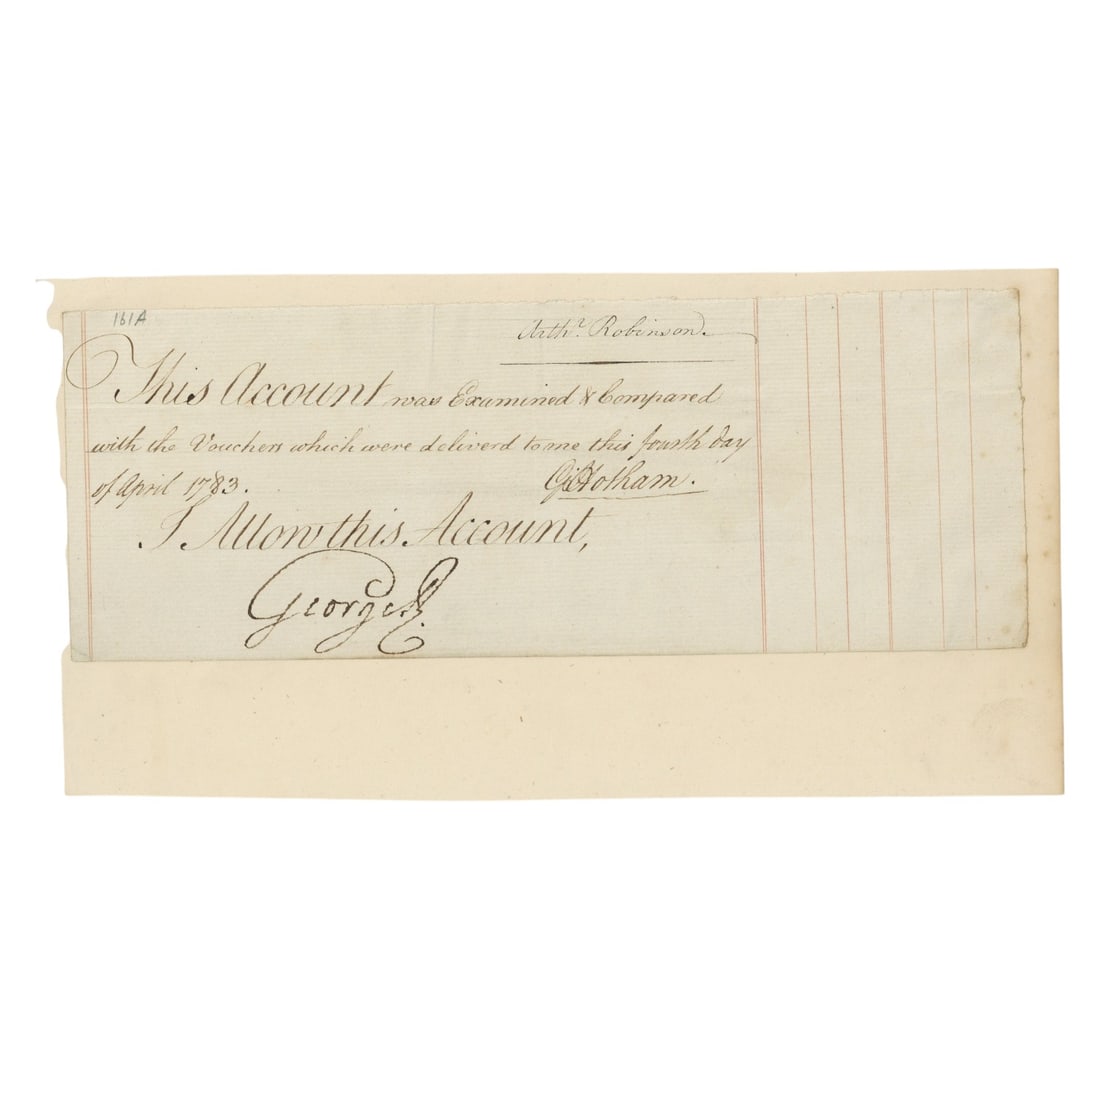 161A
Arthr. Robinson.
This Account was Examined & Compared
with the Vouchers which were deliverd to me this fourth day
of April 1783. G: Hotham.
I Allow this Account,
George R.